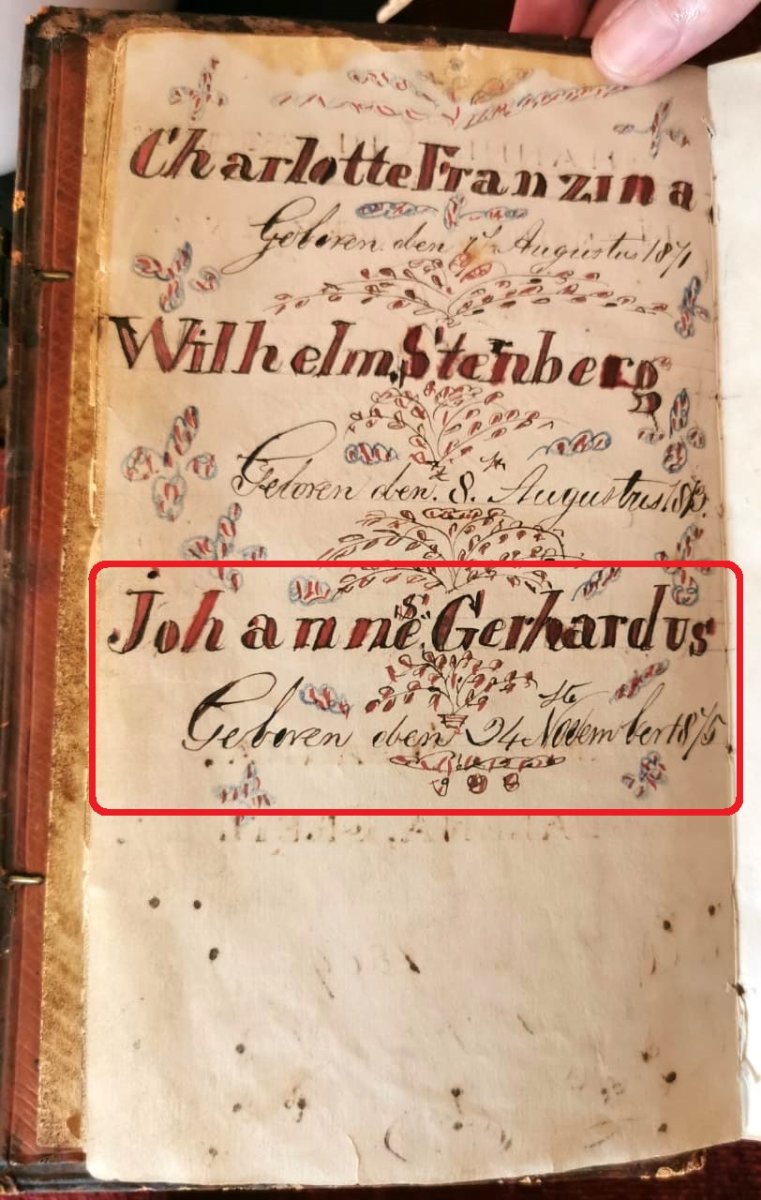 Charlotte Franzina
Geboren den 7de Augustus 1871
Wilhelm, Stenberg
Geboren den 8. Augustus 1873.
Johannes, Gerhardus
Geboren den 24ste November 1875